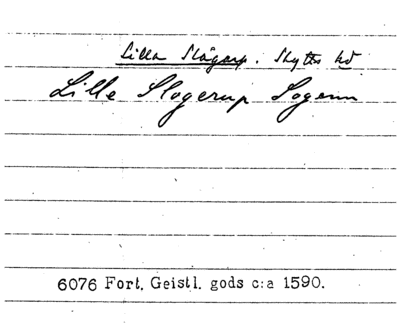 Lilla Slågarp. Skytts hd
Lille Slogerup Sogenn
6076 Fort. Geistl. gods c:a 1590.